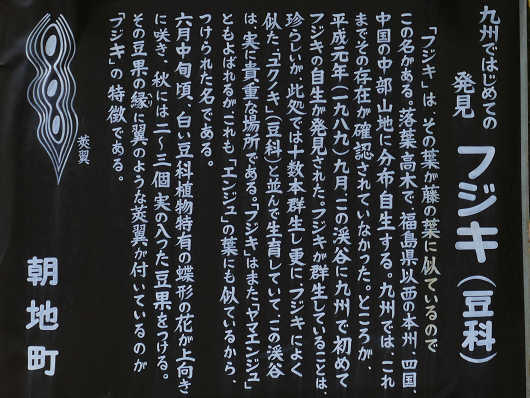 九州ではじめての
発見
フジキ(豆科)
「フジキ」は、その葉が藤の葉に似ているので
この名がある。落葉高木で、福島県以西の本州、四国、
中国の中部山地に分布自生する。九州では、これ
までその存在が確認されていなかった。ところが、
平成元年(一九八九)九月、この渓谷に九州で初めて
フジキの自生が発見された。フジキが群生していることは、
珍らしいが、此処では十数本群生し更に、「フジキ」によく
似た、「ユクノキ」(豆科)と並んで生育していて、この渓谷
は、実に貴重な場所である。「フジキ」はまた、「ヤマエンジュ」
ともよばれるが、これも「エンジュ」の葉にも似ているから、
つけられた名である。
六月中旬頃、白い豆科植物特有の蝶形の花が上向き
に咲き、秋には二〜三個実の入った豆果をつける。
その豆果の縁(へり)に翼のような莢翼が付いているのが
「フジキ」の特徴である。
莢翼
朝地町